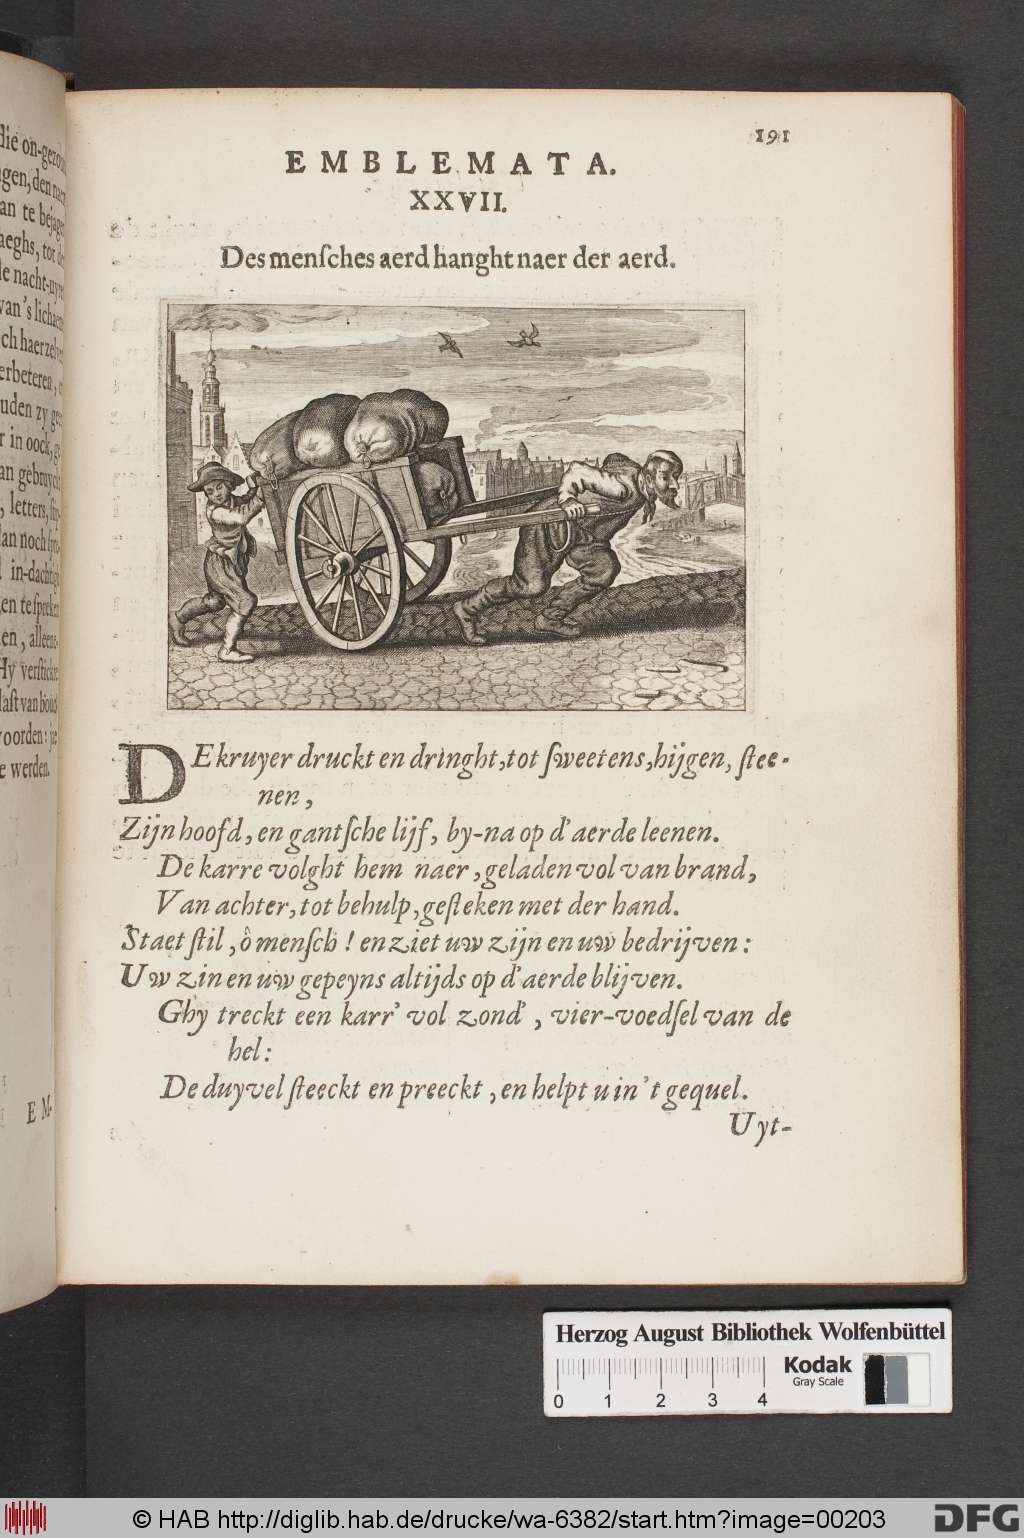 191
EMBLEMATA.
XXVII.
Des menſches aerd hanght naer der aerd.
DE kruyer druckt en dringht, tot ſweetens, hijgen, ſtee-
nen,
Zijn hoofd, en gantſche lijf, by-na op d'aerde leenen.
De karre volght hem naer, geladen vol van brand,
Van achter, tot behulp, geſteken met der hand.
Staet ſtil, ô menſch! en ziet uw zijn en uw bedrijven:
Uw zin en uw gepeyns altijds op d'aerde blijven.
Ghy treckt een karr' vol zond', vier-voedſel van de
hel:
De duyvel ſteeckt en preeckt, en helpt u in 't gequel.
Uyt-
die on-gezon
gen, den nacht
an te bejagen
aeghs, tot de
de nacht-uyre
van 's lichaem
ch haer zelve
erbeteren,
uden zy ge
r in oock, g
an gebruyck
, letters,
an noch
in-dachtigh
en te ſpreken
en, alleen-
Hy verſtickt
laſt van
oorden: je
e werden.
E M-
Herzog August Bibliothek Wolfenbüttel
Kodak
Gray Scale
0 1 2 3 4
© HAB http://diglib.hab.de/drucke/wa-6382/start.htm?image=00203
DFG